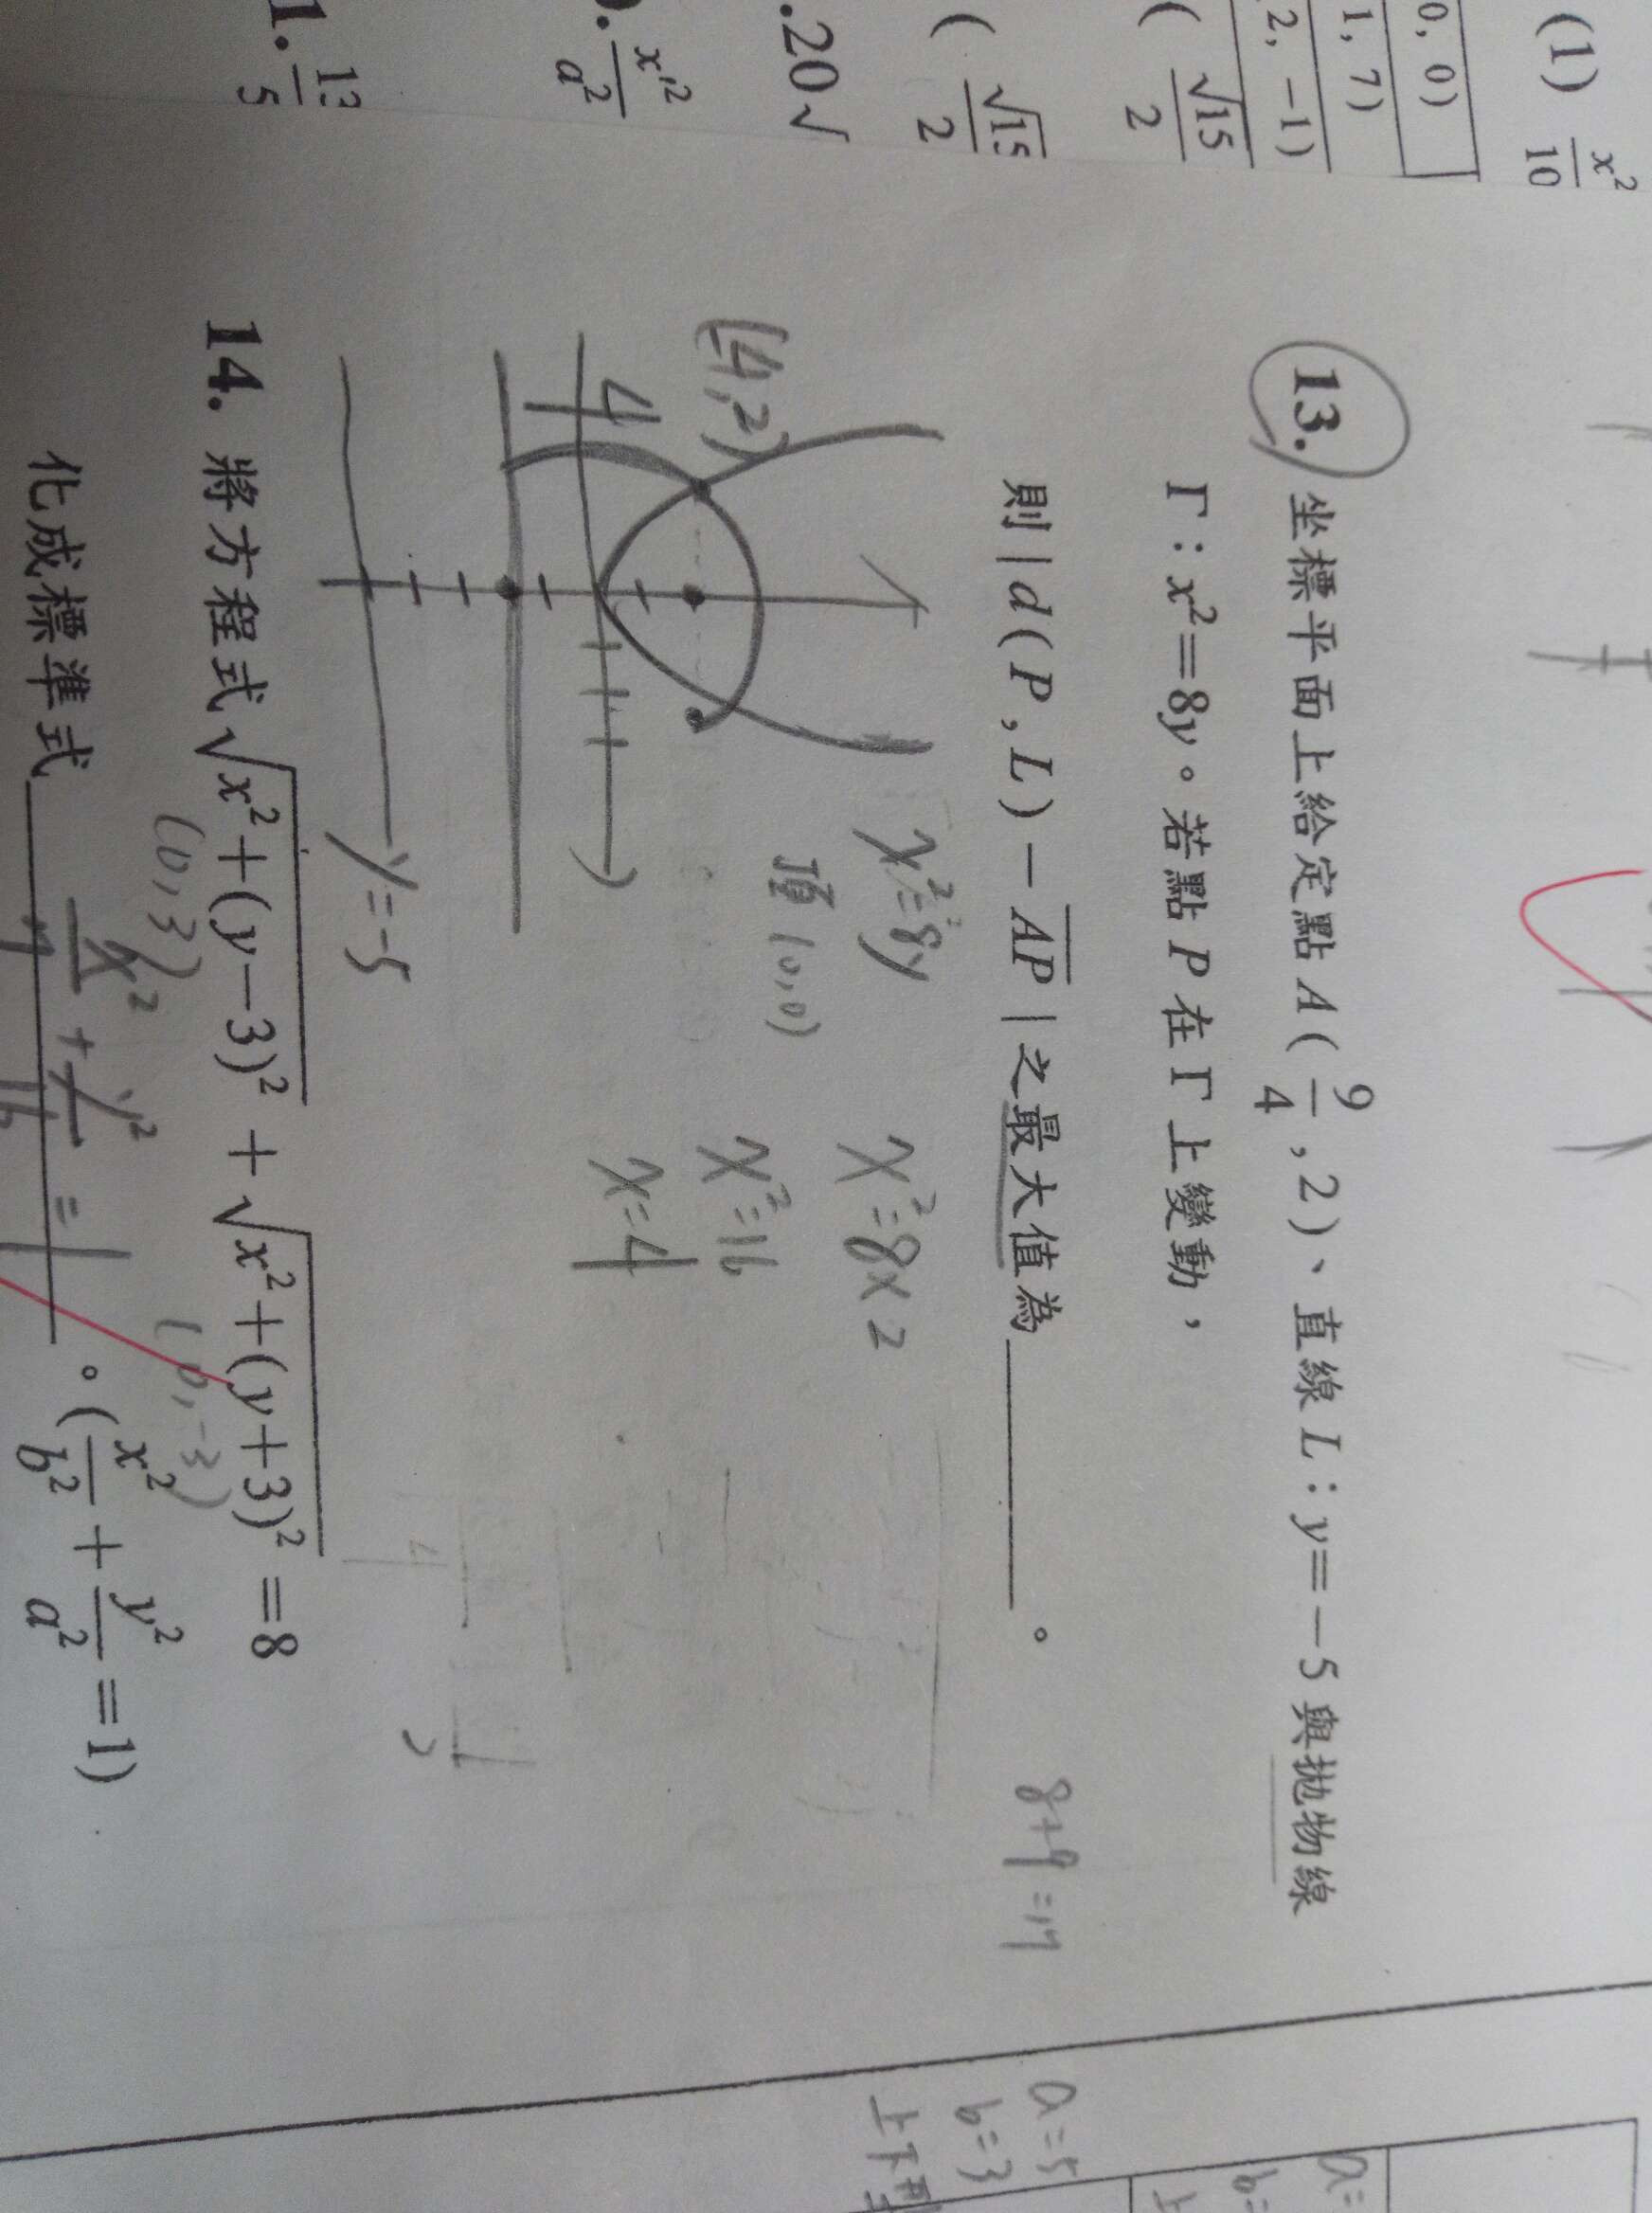 (1) x²/10
0, 0)
1, 7)
2, −1)
( √15/2
( √15/2
.20√
x''²/a²
1. 13/5
13. 坐標平面上給定點 A(9/4, 2)、直線 L：y=−5與拋物線
Γ：x²=8y。若點 P 在 Γ 上變動，
則 |d(P, L)−AP| 之最大值為______。
8+9=17
x²=8y
頂(0,0)
x²=8×2
x²=16
x=4
(4,2)
4
y=-5
14. 將方程式√x²+(y−3)² + √x²+(y+3)² =8
(0,3)
(0,-3)
化成標準式______。(x²/b² + y²/a² =1)
x²/7 + y²/16 = 1
a=5
b=3
上下型
a=
b=
上